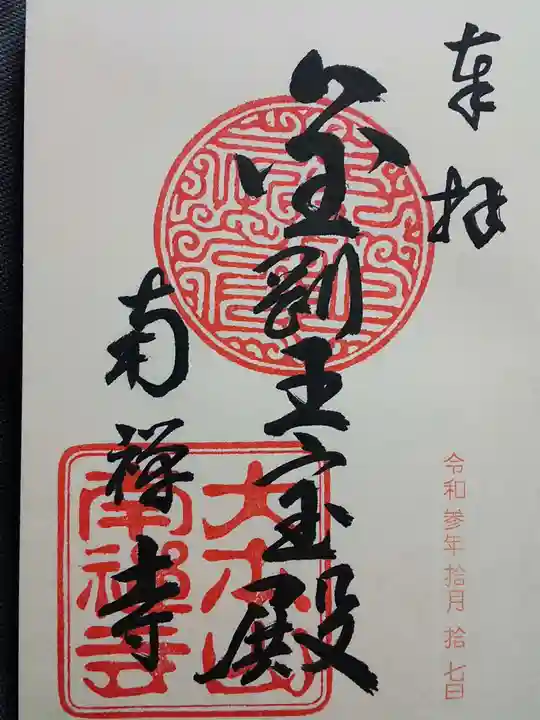 奉拝
令和参年拾月拾七日
金剛王宝殿
南禅寺
大本山
南禅寺